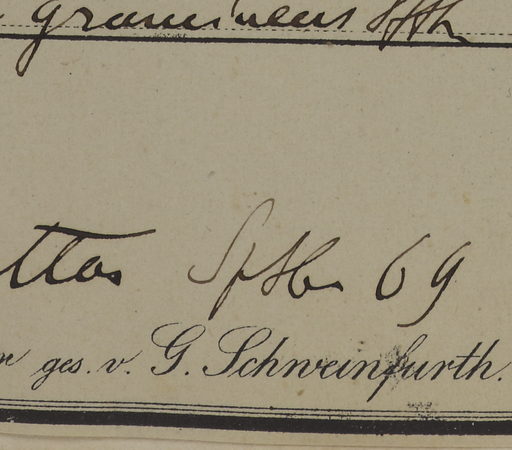 gramineus Schffth
ttas Sptbr 69
r ges. v. G. Schweinfurth.